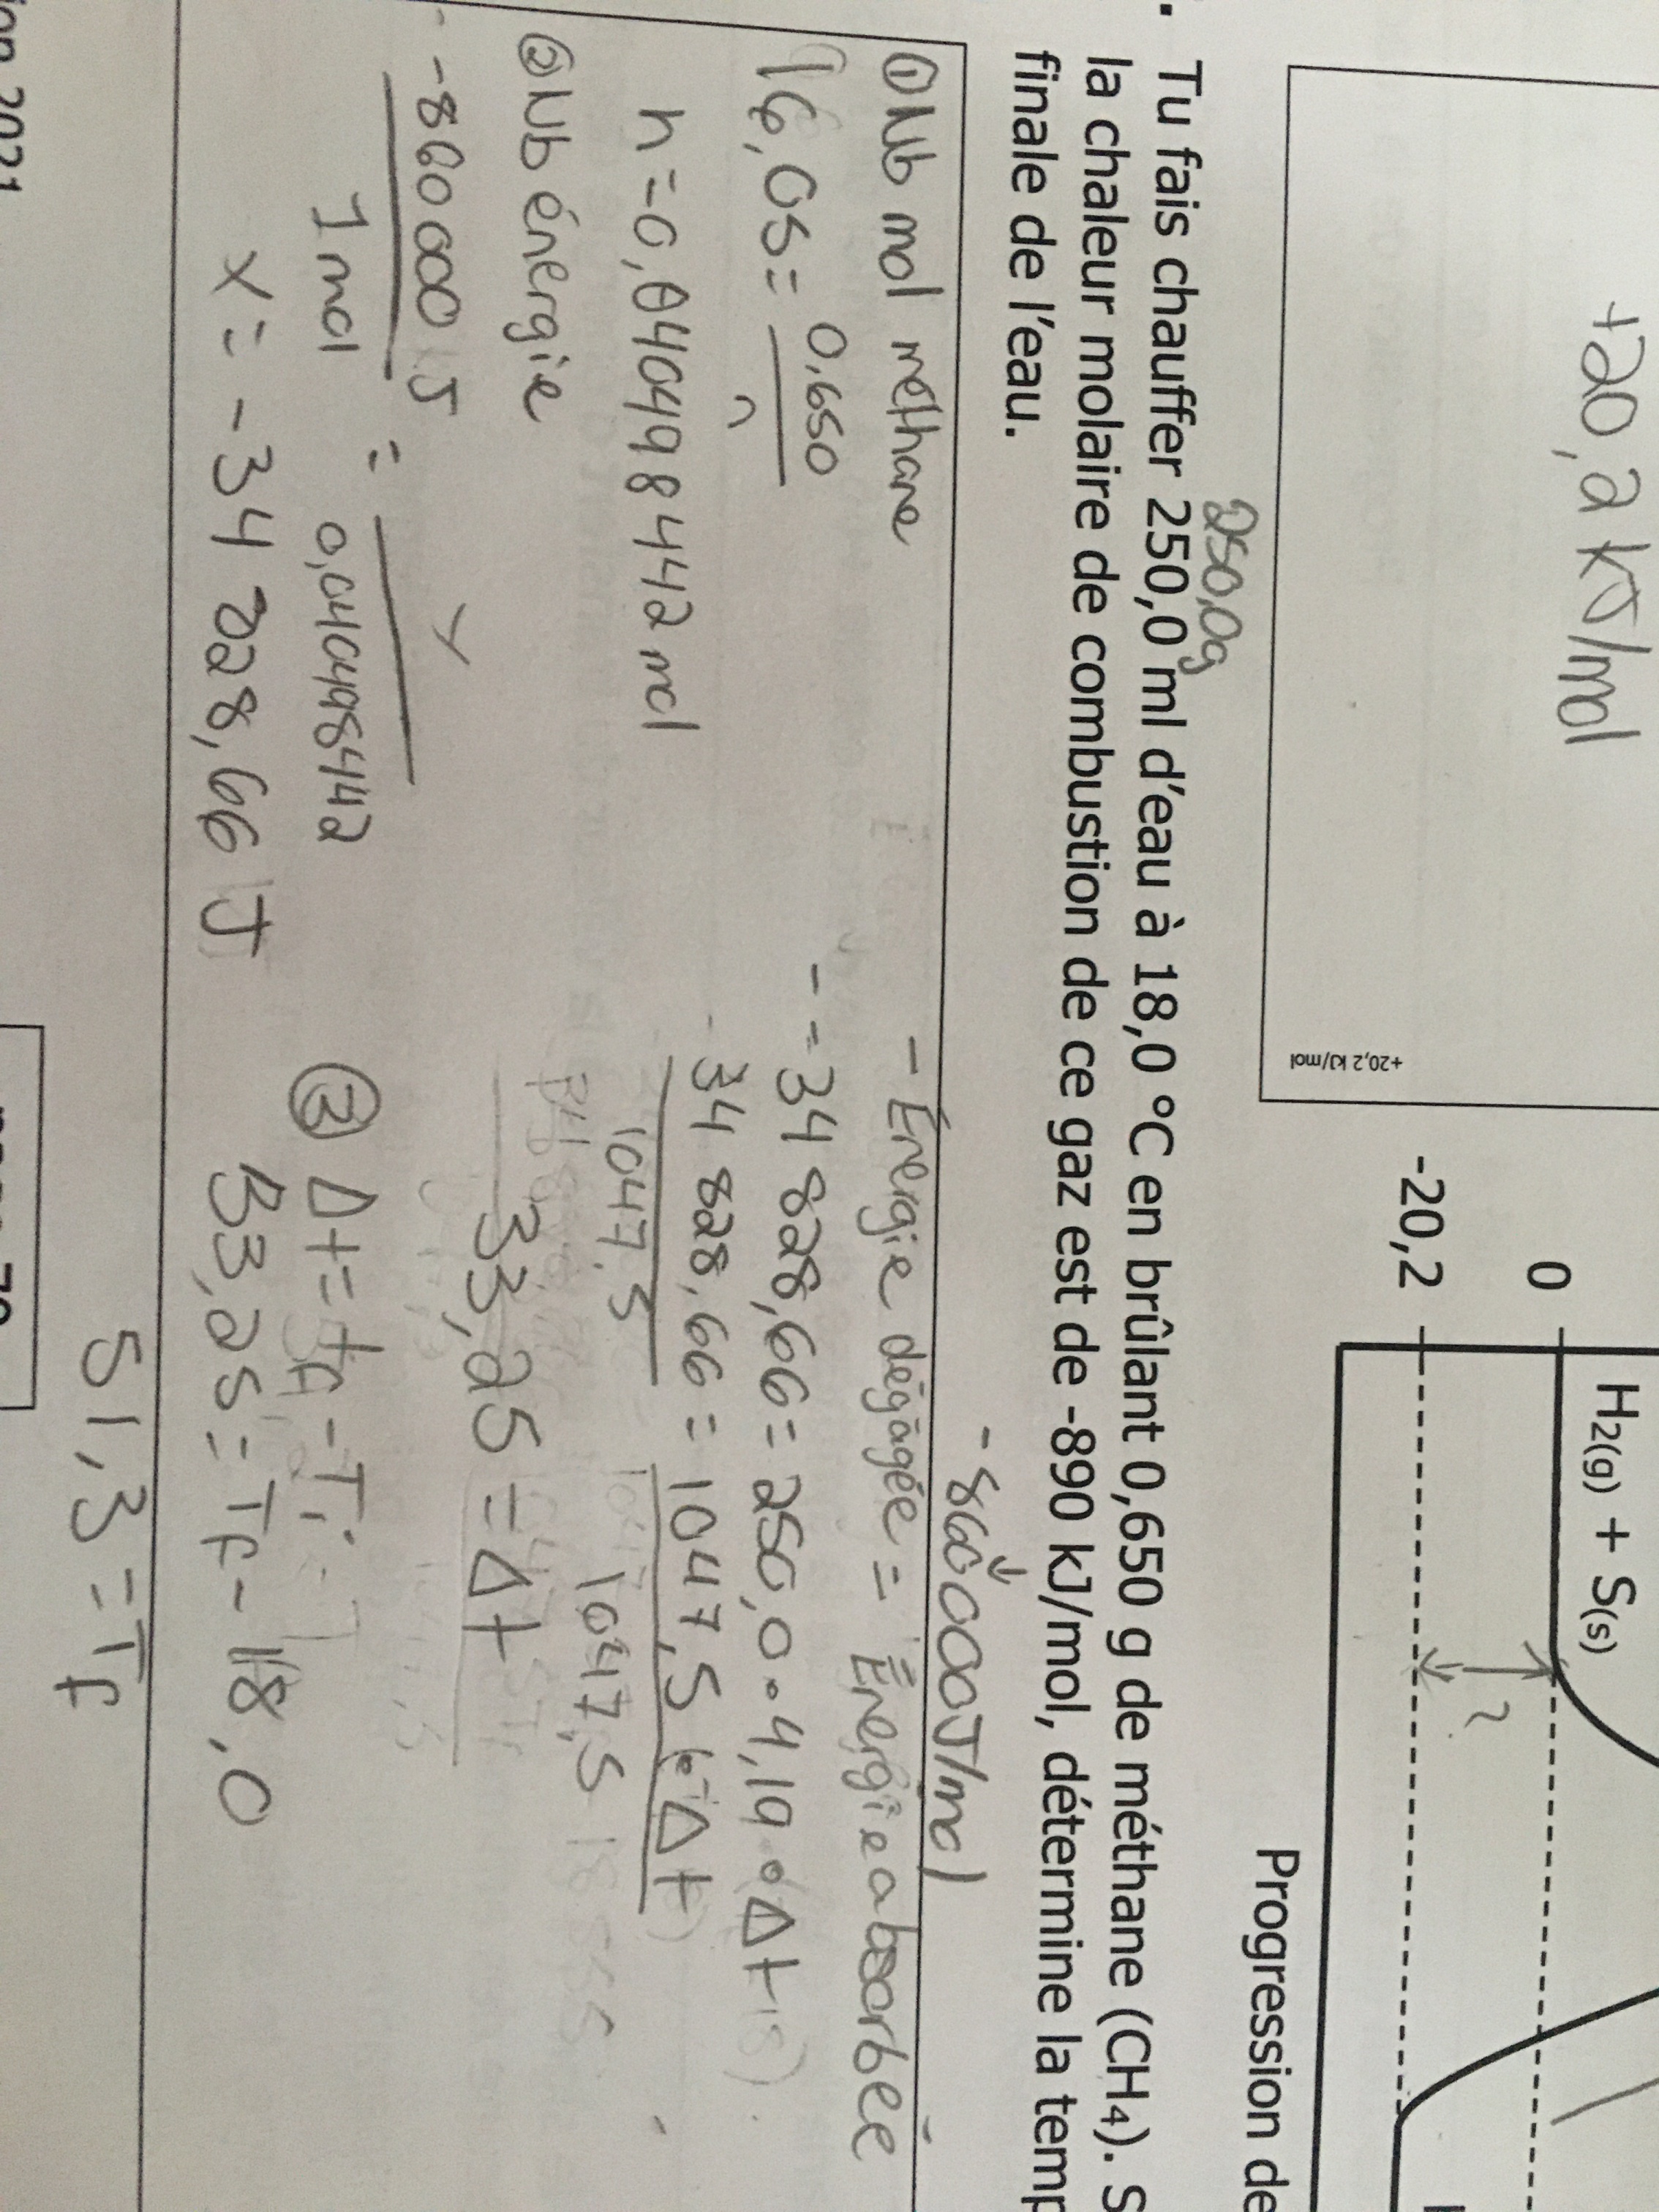 +20,2 kJ/mol
+20,2 kJ/mol
0
-20,2
H2(g) + S(s)
?
Progression de
250,0g
. Tu fais chauffer 250,0 ml d'eau à 18,0 °C en brûlant 0,650 g de méthane (CH4). S
la chaleur molaire de combustion de ce gaz est de -890 kJ/mol, détermine la temp
finale de l'eau.
-860000J/mol
① Nb mol méthane
16,05= 0,650
n
n=0,040498442 mol
② Nb énergie
-860000 J = x
1 mol 0,040498442
x= -34 828,66 J
- Énergie dégagée = Énergie absorbée
- -34 828,66= 250,0•4,19•Δt
34 828,66 = 1047,5 • Δt
1047,5 1047,5
33,25 = Δt
③ Δt= tf - Ti
33,25= Tf-18,0
51,3 =Tf
ion 2021